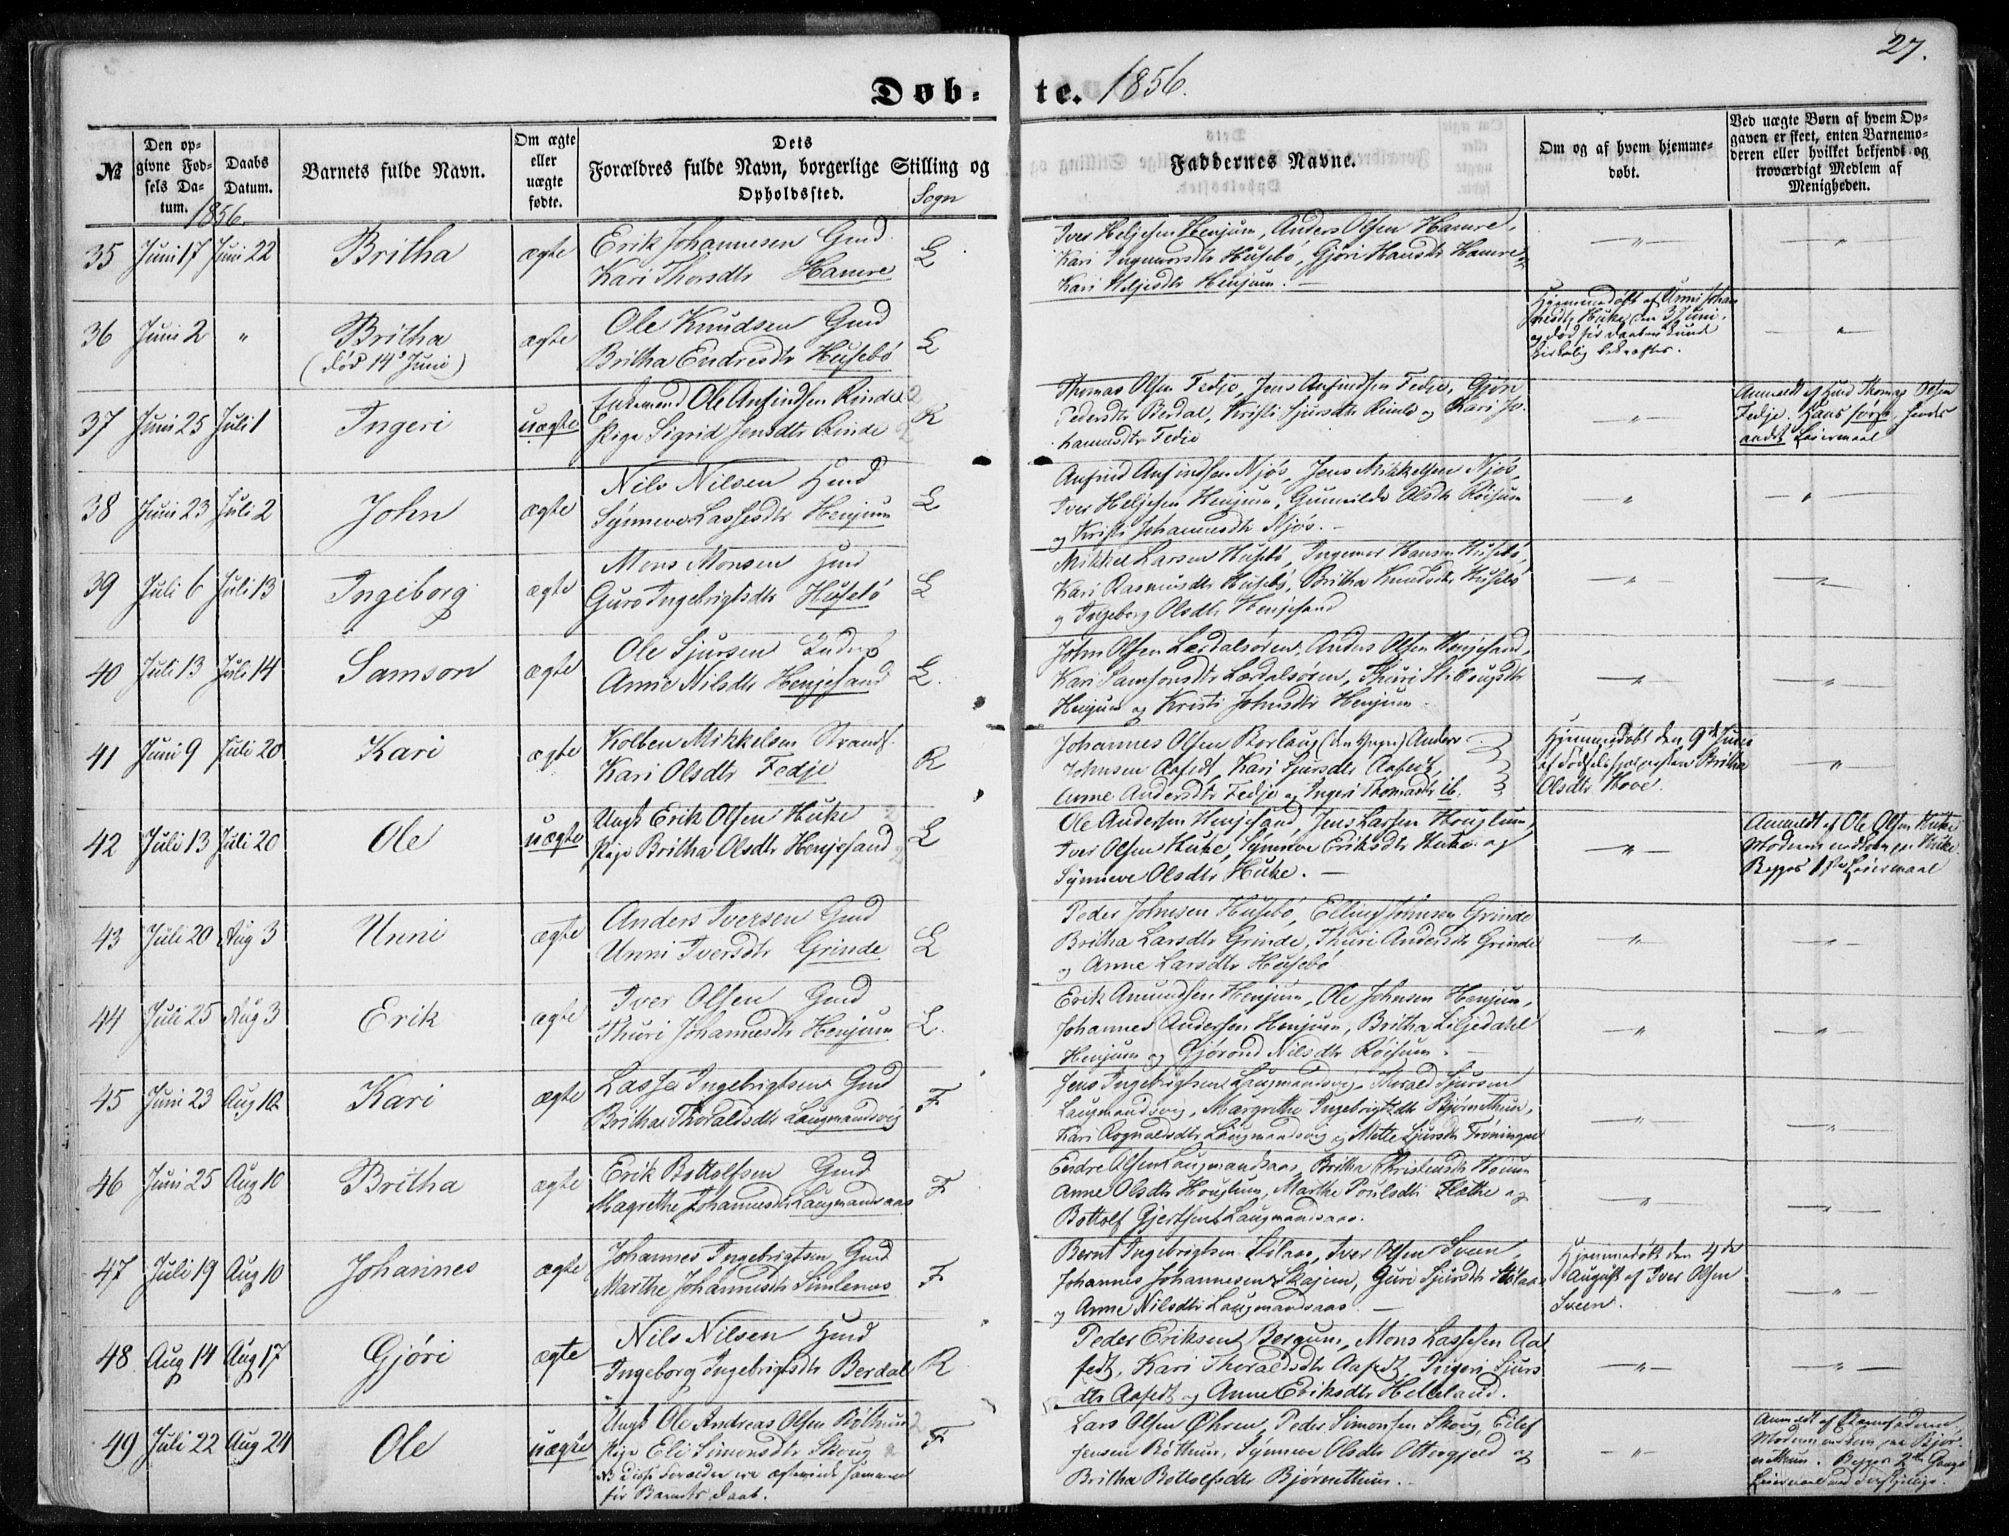 27.
Døb- te. 1856.
№
Den opgivne Fødsels Datum.
Daabs Datum.
Barnets fulde Navn.
Om ægte eller uægte fødte.
Dets Forældres fulde Navn, borgerlige Stilling og Opholdssted.
Sogn
Faddernes Navne.
Om og af hvem hjemmedøbt.
Ved uægte Børn af hvem Opgaven er skeet, enten Barnemoderen eller hvilket bekjendt og troværdigt Medlem af Menigheden.
1856.
35 Juni 17 Juni 22 Britha ægte Erik Johannesen Gmd
Kari Thorsdtr Hamre L
Iver Heljesen Henjum, Anders Olsen Hamre,
Kari Ingemorsdtr Husebö, Gjöri Hansdtr Hamre &
Kari Heljesdtr Henjum. — " — "
36 Juni 2 " Britha
(död 14de Juni) ægte Ole Knudsen Gmd
Britha Endresdtr Husebö L
Hjemmedöbt af Unni Johannesdtr Huke den 3 Juni,
og död för Daaben kunde
kirkelig bekræftes. "
37 Juni 25 Juli 1 Ingeri uægte Enkemand Ole Anfindsen Rinde 2
Pige Sigrid Jensdtr Rinde 2 R
Thomas Olsen Fedje, Jens Anfindsen Fedje, Gjöri
Pedersdtr Berdal, Kristi Sjursdtr Rinde og Kari Johannesdtr Fedje "
Anmeldt af Hmd Thomas Olsen
Fedje. Hans förste, hendes
andet Leiermaal
38 Juni 23 Juli 2 John ægte Nils Nilsen Hmd
Synneve Lassesdtr Henjum L
Anfind Anfindsen Njös, Jens Mikkelsen Njös,
Iver Heljesen Henjum, Gunnilde Olsdtr Röisum
og Kristi Johannesdtr Njös. — " "
39 Juli 6 Juli 13 Ingeborg ægte Mons Monsen Hmd
Guro Ingebrigtsdtr Husebö L
Mikkel Larsen Husebö, Ingemor Hansen Husebö,
Kari Rasmusdtr Husebö, Britha Knudsdtr Husebö
og Ingeborg Olsdtr Henjesand " "
40 Juli 13 Juli 14 Samson ægte Ole Sjursen Inders
Anne Nilsdtr Henjesand L.
John Olsen Lærdalsören, Anders Olsen Henjesand,
Kari Samsonsdtr Lærdalsören, Thuri
Henjum og Kristi Johnsdtr Henjum. " "
41 Juni 9 Juli 20 Kari ægte Kolben Mikkelsen Strands.
Kari Olsdtr Fedje R
Johannes Olsen Borlaug (den Yngre) Anders
Johnsen Aafedt, Kari Sjursdtr Aafedt,
Anne Andersdtr Fedje og Ingeri Thomasdtr ib.
Hjemmedöbt den 9de Juni
af Födselshjælpersken Britha
Olsdtr Hove. "
42 Juli 13 Juli 20 Ole uægte Ungk Erik Olsen Huke 2
Pige Britha Olsdtr Henjesand 2 L
Ole Andersen Henjesand, Jens Larsen Houglum,
Iver Olsen Huke, Synneve Eriksdtr Huke og
Synneve Olsdtr Huke. — "
Anmeldt af Ole Olsen Huke
Moderens nedkom paa Huke.
Begges 1ste Leiermaal
43 Juli 20 Aug 3 Unni ægte Anders Iversen Gmd
Unni Iversdtr Grinde L
Peder Johnsen Husebö, Elling Johnsen Grinde
Britha Larsdtr Grinde, Thuri Andersdtr Grinde
og Anne Larsdtr Husebö " "
44 Juli 25 Aug 3 Erik ægte Iver Olsen Gmd
Thuri Johannesdtr Henjum L.
Erik Amundsen Henjum, Ole Johnsen Henjum,
Johannes Andersen Henjum, Britha Liljedahl
Henjum og Gjörond Nilsdtr Röisum. — " "
45 Juni 23 Aug 10 Kari ægte Lasse Ingebrigtsen Gmd
Britha Thoraldsdtr Laugmandsvig F
Jens Ingebrigtsen Laugmandsvig, Thorald Sjursen
Laugmandsvig, Margrethe Ingebrigtsdtr Björnethun,
Kari Rognaldsdtr Laugmandsvig og Mette Sjursdtr Fröningen " "
46 Juni 25 Aug 10 Britha ægte Erik Bottolfsen Gmd
Magrethe Johannesdtr Laugmandsaas F
Endre Olsen Laugmandsaas, Britha Christensdtr Houm
Anne Olsdtr Houglum, Marthe Poulsdtr Flæthe og
Bottolf Gjertsen Laugmandsaas. " "
47 Juli 19 Aug 10 Johannes ægte Johannes Ingebrigtsen Gmd
Marthe Johannesdtr Simlenæs F
Bernt Ingebrigtsen Stölaas, Iver Olsen Sveen,
Johannes Johannesen Skajem, Guri Sjursdtr Stölaas
og Anne Nilsdtr Laugmandsaas —
Hjemmedöbt den 4de
August af Iver Olsen
Sveen. "
48 Aug 14 Aug 17 Gjöri ægte Nils Nilsen Hmd
Ingeborg Ingebrigtsdtr Berdal R
Peder Eriksen Bergum, Mons Lassesen Aafedt, Kari Thoraldsdtr Aafedt, Ingeri Sjursdtr Aafedt og Anne Eriksdtr Helleland. " "
49 Juli 22 Aug 24 Ole uægte Ungk Ole Andreas Olsen Böthun 2
Pige Eli Simonsdtr Skoug 2 F
NB Disse Forældre ere ægteviede sammen
för Barnets Daab.
Lars Olsen Öhren, Peder Simonsen Skoug, Eilef
Jensen Böthun, Synneve Olsdtr Ottergjeld og
Britha Bottolfsdtr Björnethun. "
Anmeldt af Barnefaderen
Moderen nedkom paa Björnethun. Begges 2den Gangs
Leiermaal med forskjellige.